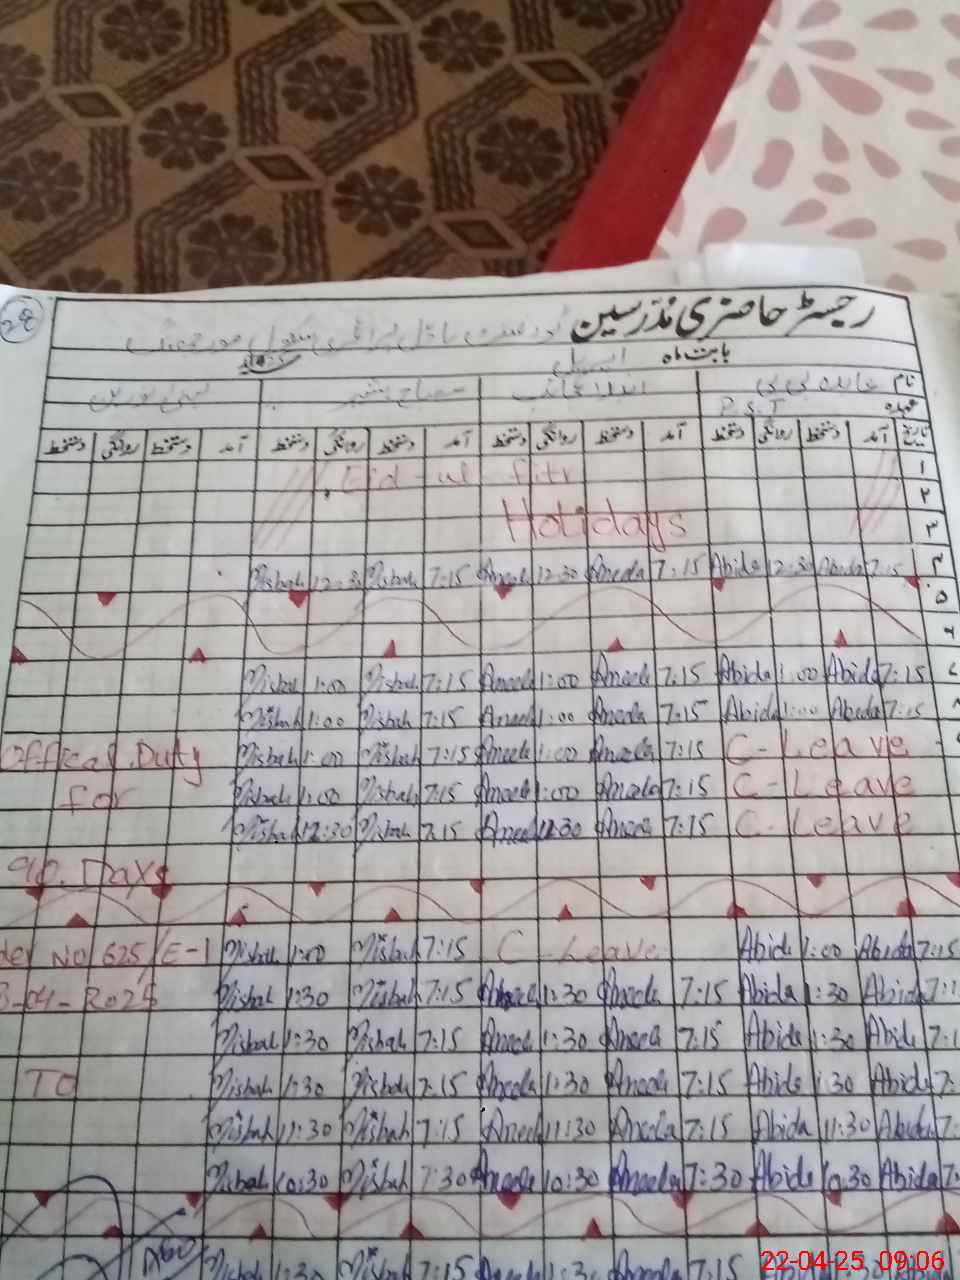 28
رجسٹر حاضری مدرسین
بابت ماہ اپریل
نام عابدہ بی بی
عہدہ P.S.T
تاریخ آمد دستخط روانگی دستخط آمد دستخط روانگی دستخط آمد دستخط روانگی دستخط آمد دستخط روانگی دستخط
۱ Eid-ul-fitr
۲
۳ Holidays
۴ Misbah 12:30 Misbah 7:15 Aneela 12:30 Aneela 7:15 Abida 12:30 Abida 7:15
۵
۶
۷ Misbah 1:00 Misbah 7:15 Aneela 1:00 Aneela 7:15 Abida 1:00 Abida 7:15
۸ Misbah 1:00 Misbah 7:15 Aneela 1:00 Aneela 7:15 Abida 1:00 Abida 7:15
Offical Duty Misbah 1:00 Misbah 7:15 Aneela 1:00 Aneela 7:15 C-Leave
for Misbah 1:00 Misbah 7:15 Aneela 1:00 Aneela 7:15 C-Leave
Misbah 12:30 Misbah 7:15 Aneela 12:30 Aneela 7:15 C-Leave
90. Days
der No 625/E-1 Misbah 1:00 Misbah 7:15 C-Leave Abida 1:00 Abida 7:15
-04-2025 Misbah 1:30 Misbah 7:15 Aneela 1:30 Aneela 7:15 Abida 1:30 Abida 7:1
Misbah 1:30 Misbah 7:15 Aneela 1:30 Aneela 7:15 Abida 1:30 Abida 7:1
TO Misbah 1:30 Misbah 7:15 Aneela 1:30 Aneela 7:15 Abida 1:30 Abida 7:
Misbah 11:30 Misbah 7:15 Aneela 11:30 Aneela 7:15 Abida 11:30 Abida 7:
Misbah 10:30 Misbah 7:30 Aneela 10:30 Aneela 7:30 Abida 10:30 Abida 7:
Misbah 1:30 Misbah 7:15 Aneela 1:30 Aneela 7:15 Abida
22-04-25 09:06